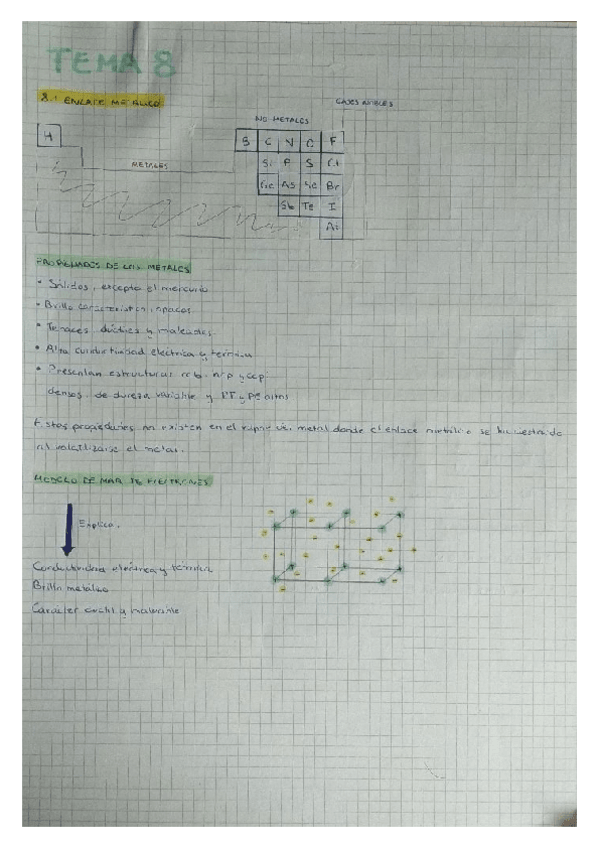 TEMA 8
8.1 ENLACE METÁLICO
GASES NOBLES
NO METALES
H
B C N O F
METALES
Si P S Cl
Ge As Se Br
Sb Te I
At
PROPIEDADES DE LOS METALES
• Sólidos, excepto el mercurio
• Brillo característico, opacos
• Tenaces, dúctiles y maleables
• Alta conductividad electrica y térmica
• Presentan estructuras ccb, hcp y ccp
densos, de dureza variable y PF y PE altos
Estas propiedades no existen en el vapor del metal donde el enlace metálico se ha destruido
al volatilizarse el metal.
MODELO DE MAR DE ELECTRONES
Explica.
Conductividad eléctrica y térmica
Brillo metálico
Carácter dúctil y maleable